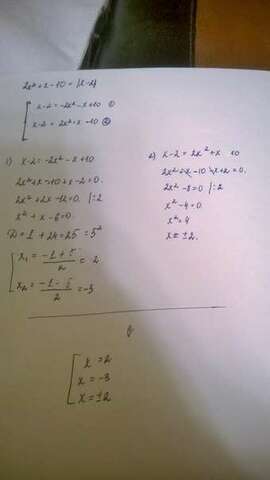 2x²+x-10=|x-2|
x-2=-2x²-x+10 ①
x-2=2x²+x-10 ②
1) x-2=-2x²-x+10
2x²+x-10+x-2=0.
2x²+2x-12=0. |:2
x²+x-6=0.
D=1+24=25=5²
x₁=(-1+5)/2=2
x₂=(-1-5)/2=-3
2) x-2=2x²+x-10
2x²+x-10-x+2=0.
2x²-8=0 |:2
x²-4=0.
x²=4
x=±2.
x=2
x=-3
x=±2